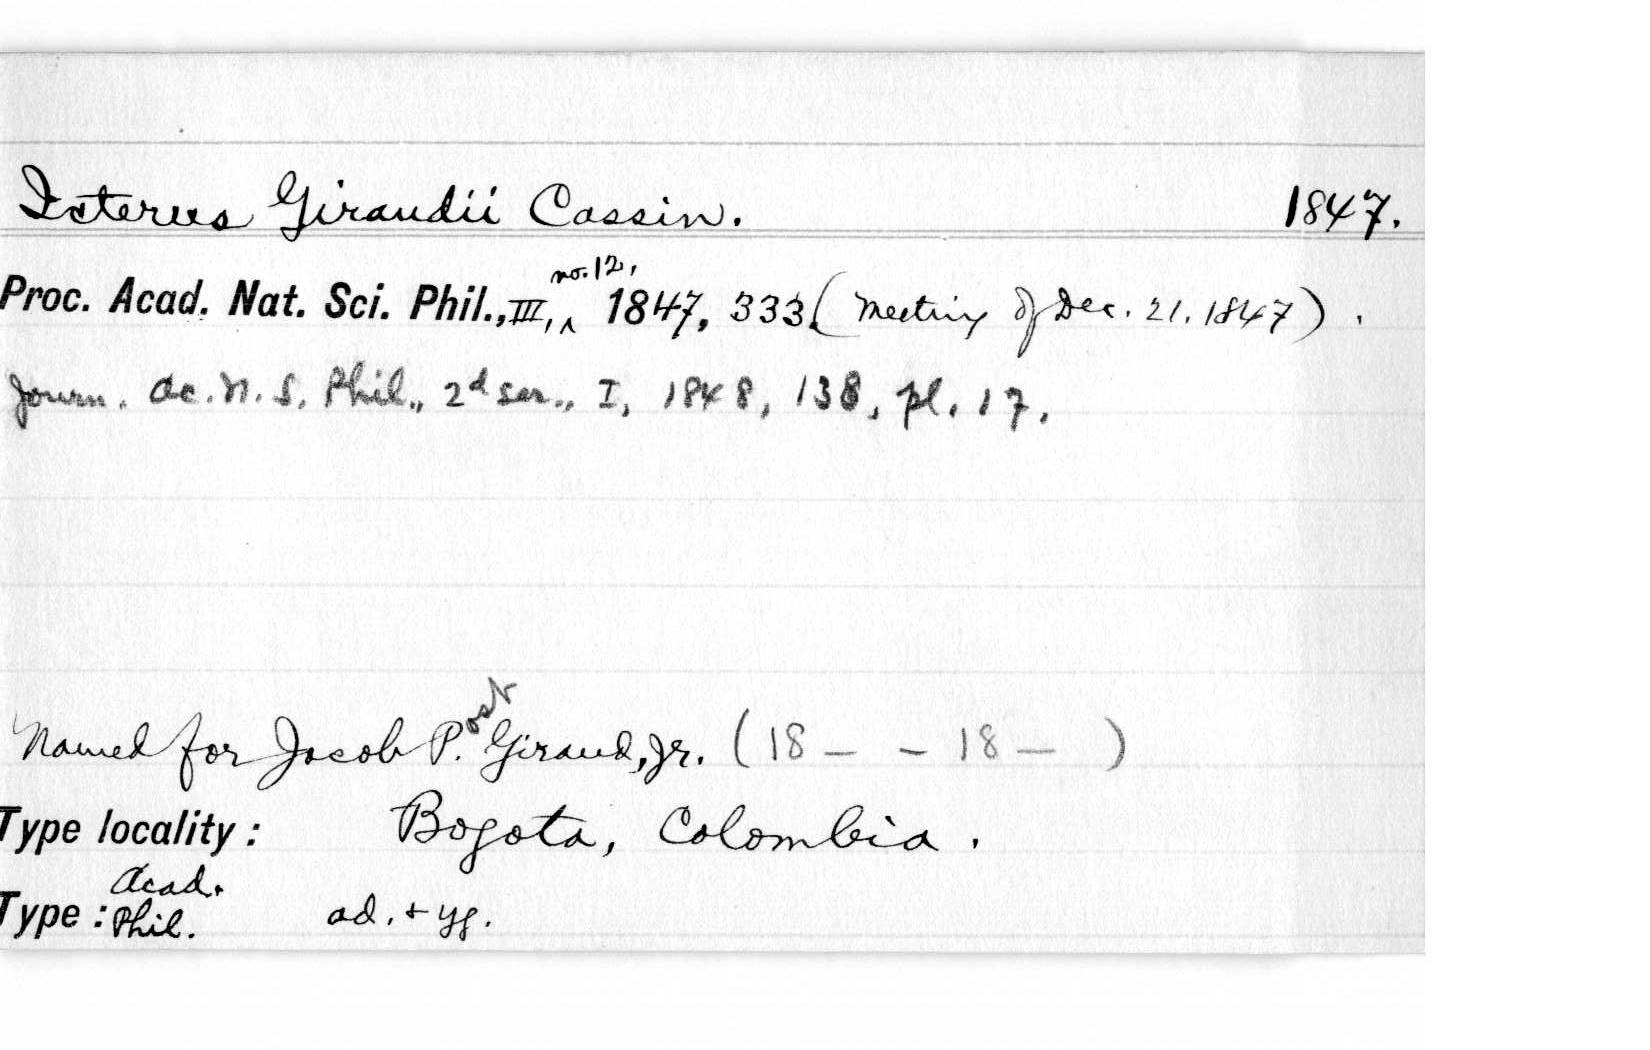 Icterus Giraudii Cassin. 1847.
Proc. Acad. Nat. Sci. Phil., III, no. 12, 1847, 333. (Meeting of Dec. 21, 1847).
Journ. Ac. N. S. Phil., 2d ser., I, 1848, 138, pl. 17.
Named for Jacob P.ost Giraud, Jr. (18— – 18— )
Type locality: Bogota, Colombia.
Type: Acad. Phil. ad. + yg.